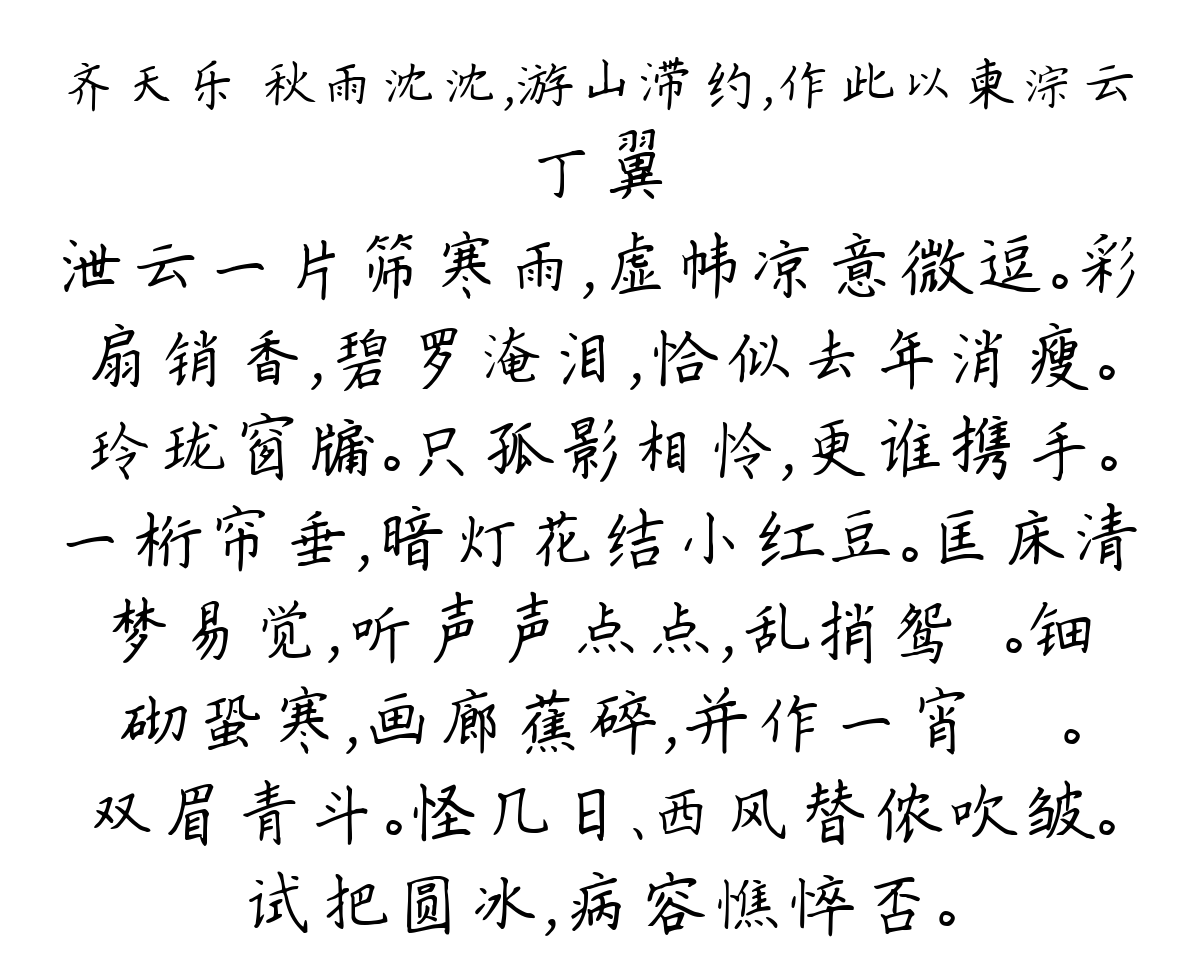 齐天乐 秋雨沈沈,游山滞约,作此以柬淙云
丁翼
泄云一片筛寒雨,虚帏凉意微逗。彩
扇销香,碧罗淹泪,恰似去年消瘦。
玲珑窗牖。只孤影相怜,更谁携手。
一桁帘垂,暗灯花结小红豆。匡床清
梦易觉,听声声点点,乱捎鸳 。钿
砌蛩寒,画廊蕉碎,并作一宵 。
双眉青斗。怪几日、西风替侬吹皱。
试把圆冰,病容憔悴否。